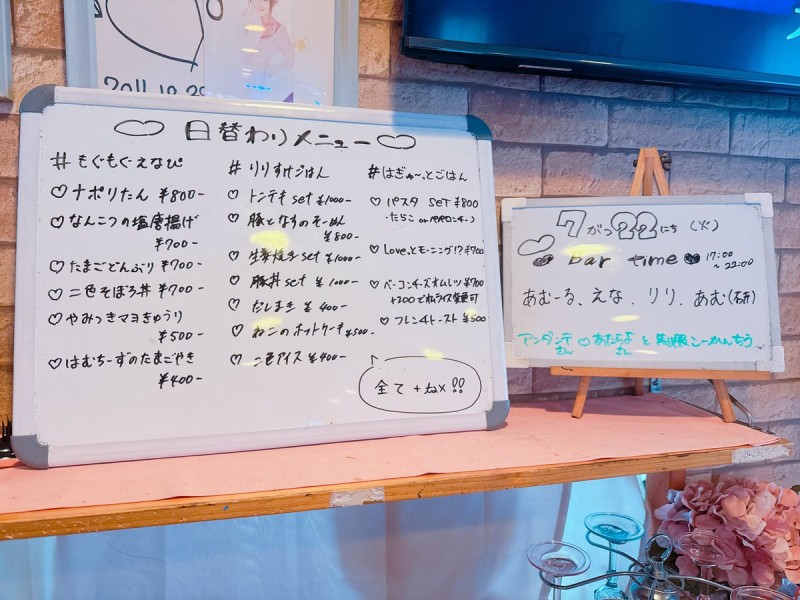 2011.10.29
日替わりメニュー
#もぐもぐえなぴ
♡ナポリたん ¥800-
♡なんこつの塩唐揚げ
¥700-
♡たまごどんぶり ¥700-
♡二色そぼろ丼 ¥700-
♡やみつきマヨきゅうり
¥500-
♡はむちーずのたまごやき
¥400-
#りりすけごはん
♡トンテキ set ¥1000-
♡豚となすのそーめん
¥800-
♡生姜焼き set ¥1000-
♡豚丼 set ¥1000-
♡だしまき ¥400-
♡ねこのホットケーキ ¥500-
♡二色アイス ¥400-
#はぎゅ〜っとごはん
♡パスタ SET ¥800
・たらこ or ペペロンチーノ
♡Love.とモーニング!? ¥700
♡ベーコンチーズオムレツ ¥700
+200でオムライス変更可
♡フレンチトースト ¥500
全て +税!!
7がつ22にち (火)
bar time 17:00
~22:00
あむーる、えな、リリ、あむ(研)
アンダンテ ♡あたらよ と
さん さん